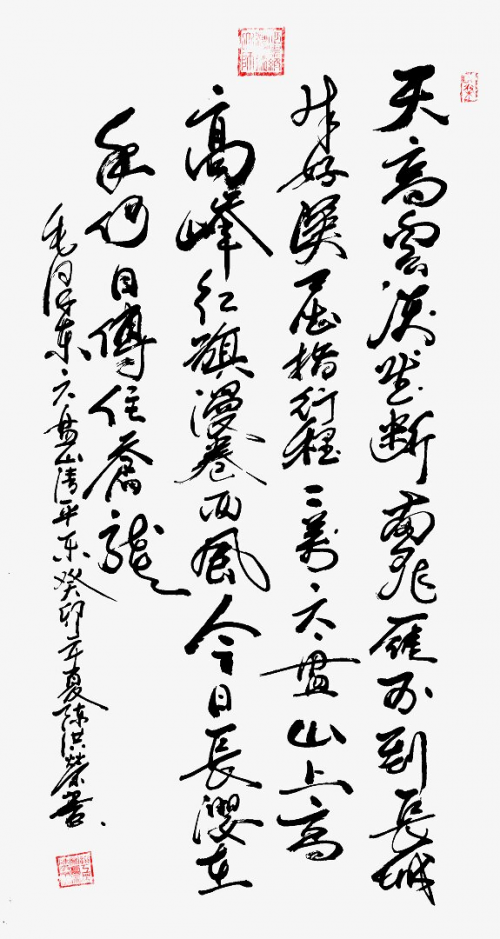 天高雲淡望斷南飛雁不到長城
非好漢屈指行程二萬六盘山上高
高峰红旗漫卷西風今日長纓在
手何日縛住蒼龍
毛泽东六盘山清平乐癸卯立夏陈洪榮書